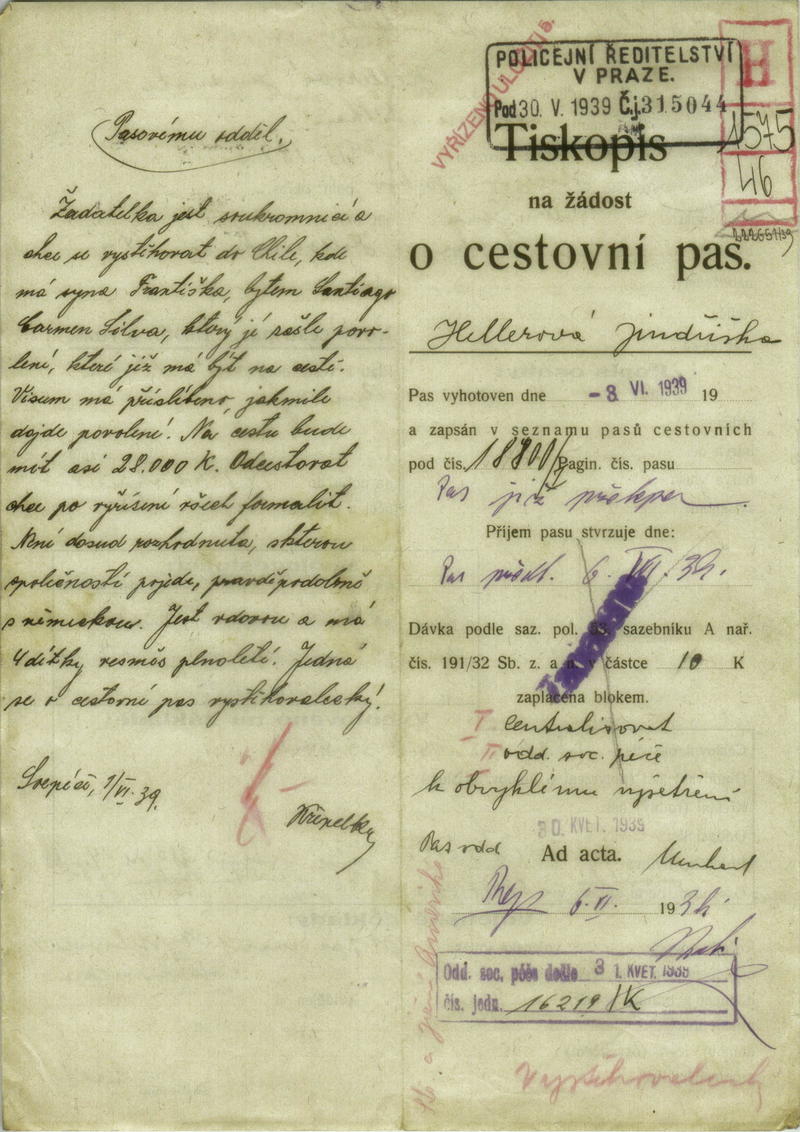 Pasovému odděl.
Žadatelka jest soukromnicí a
chce se vystěhovat do Chile, kde
má syna Františka, bytem Santiago
Carmen Silva, který jí zašle povo-
lení, které již má být na cestě.
Visum má přislíbeno, jakmile
dojde povolení. Na cestu bude
mít asi 28.000 K. Odcestovat
chce po vyřízení všech formalit.
Není dosud rozhodnuta, kterou
společností pojede, pravděpodobně
s německou. Jest vdovou a má
4 dítky vesměs plnoleté. Jedná
se o cestovní pas vystěhovalecký.
1/VI. 39.
Křepelka
VYŘÍZENO ULOŽITI
POLICEJNÍ ŘEDITELSTVÍ
V PRAZE.
Pod 30. V. 1939 Č.j. 315044
H
1575
46
Tiskopis
na žádost
o cestovní pas.
Hellerová Jindřiška
Pas vyhotoven dne - 8. VI. 1939 19
a zapsán v seznamu pasů cestovních
pod čís. 18800/ Pagin. čís. pasu
Pas již
Příjem pasu stvrzuje dne:
Pas 6. VII. 39.
Dávka podle saz. pol. 83. sazebníku A nař.
čís. 191/32 Sb. z. a n. v částce 10 K
zaplacena blokem.
I centralisovat
II odd. soc. péče
k obvyklému vyšetření
30. KVĚT. 1939
Pas odd
Ad acta.
6. VI. 1939
Odd. soc. péče došlo 31. KVĚT. 1939
čís. jedn. 16219/K
Vystěhovalecký